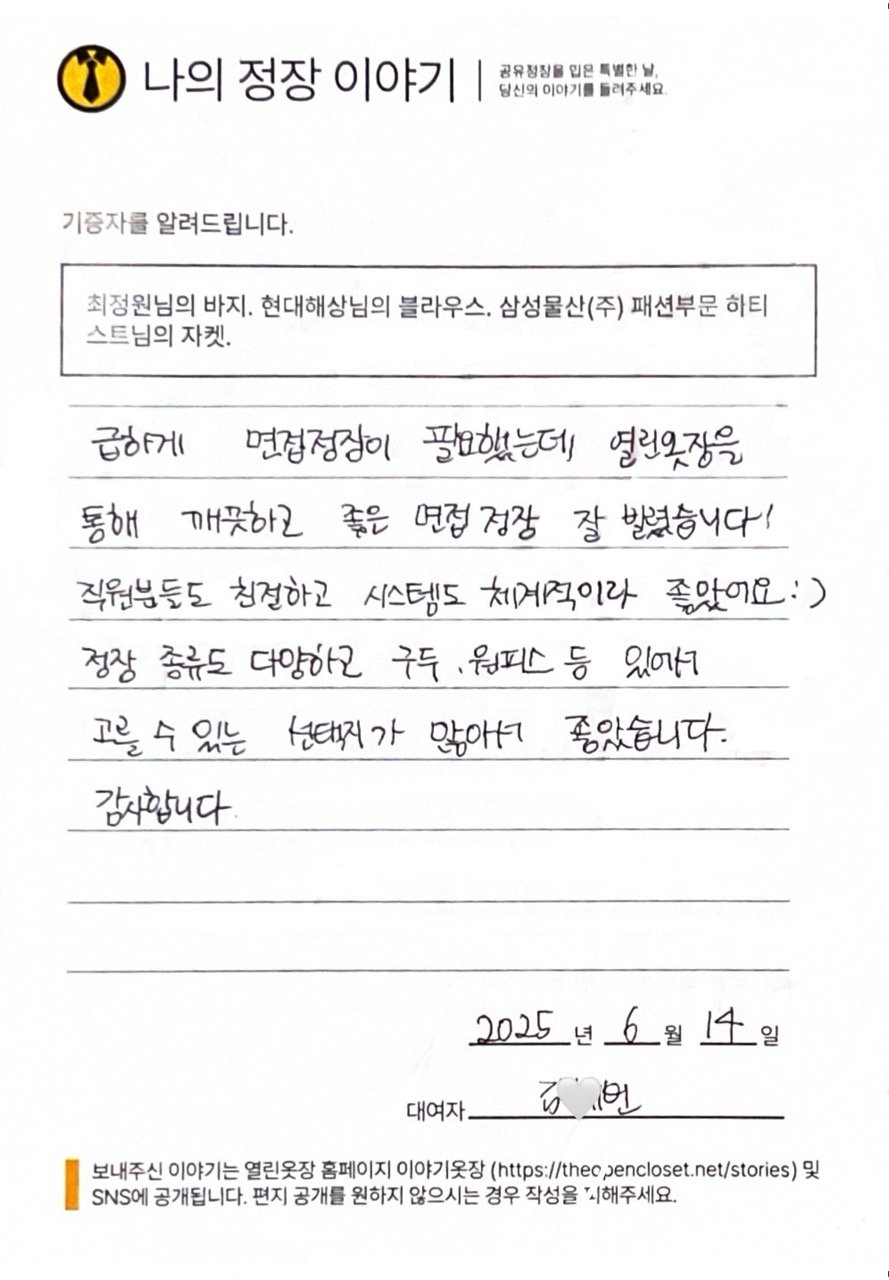 나의 정장 이야기
공유정장을 입은 특별한 날,
당신의 이야기를 들려주세요.
기증자를 알려드립니다.
최정원님의 바지. 현대해상님의 블라우스. 삼성물산(주) 패션부문 하티
스트님의 자켓.
급하게 면접정장이 필요했는데 열린옷장을
통해 깨끗하고 좋은 면접 정장 잘 빌렸습니다!
직원분들도 친절하고 시스템도 체계적이라 좋았어요:)
정장 종류도 다양하고 구두, 원피스 등 있어서
고를 수 있는 선택지가 많아서 좋았습니다.
감사합니다.
2025 년 6 월 14 일
대여자
보내주신 이야기는 열린옷장 홈페이지 이야기옷장 (https://theopencloset.net/stories) 및
SNS에 공개됩니다. 편지 공개를 원하지 않으시는 경우 작성을 피해주세요.